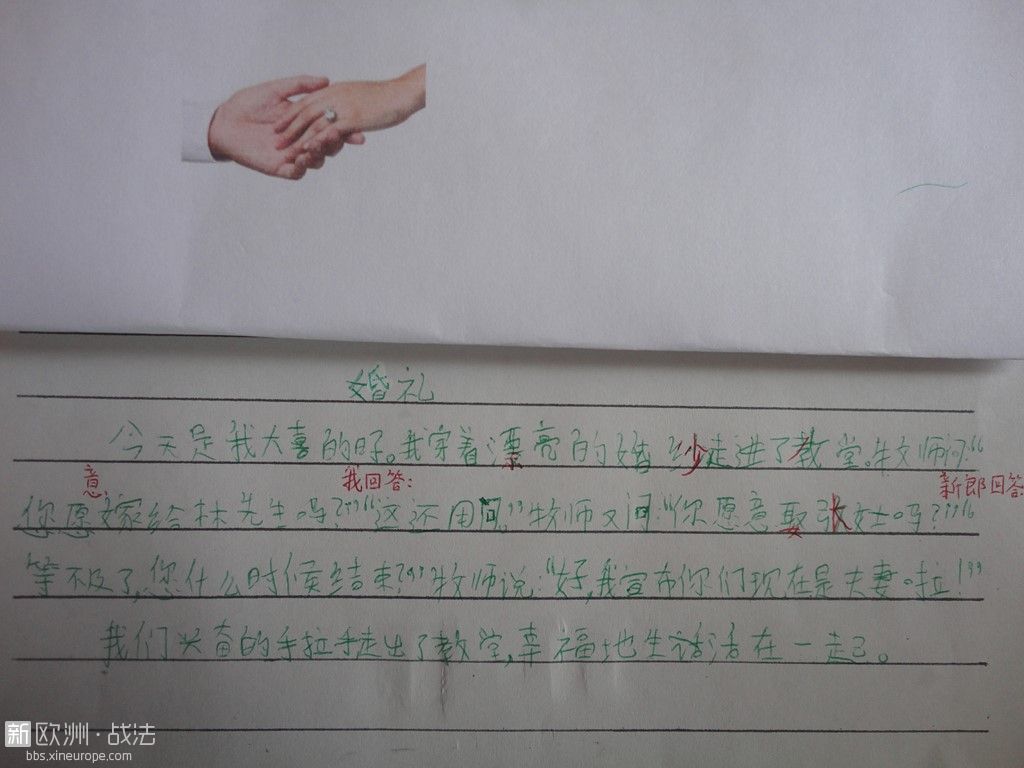 婚礼
今天是我大喜的日子。我穿着漂亮的婚纱走进了教堂。牧师问:“
意 我回答: 新郎回答:
您愿嫁给林先生吗?”“这还用问。”牧师又问:“你愿意娶张女士吗?”“
等不及了,您什么时候结束?”牧师说:“好,我宣布你们现在是夫妻啦!”
我们兴奋的手拉手走出了教堂,幸福地生活活在一起。
新欧洲·战法
bbs.xineurope.com